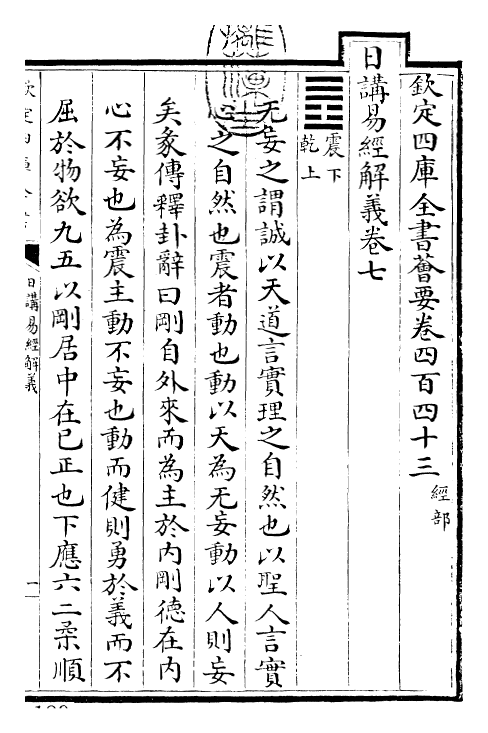 欽定四庫全書薈要卷四百四十三 經部
日講易經解義卷七
震下
乾上
无妄之謂誠以天道言實理之自然也以聖人言實
心之自然也震者動也動以天為无妄動以人則妄
矣彖傳釋卦辭曰剛自外來而為主於内剛德在内
心不妄也為震主動不妄也動而健則勇於義而不
屈於物欲九五以剛居中在已正也下應六二柔順
日講易經解義
一